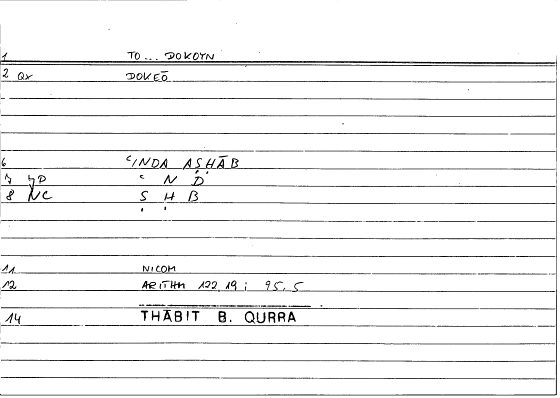 1 TO... DOKOYN
2 Qv DOKEŌ
6 ʿINDA AṢḤĀB
7 ʿ N D
8 NC Ṣ Ḥ B
11 NICOM
12 ARITHM 122,19; 95,5
14 THĀBIT B. QURRA